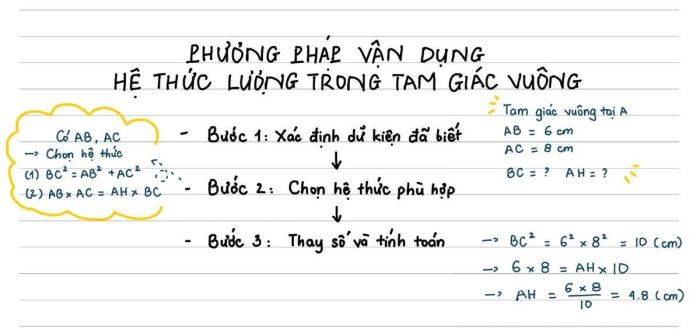 PHƯƠNG PHÁP VẬN DỤNG
HỆ THỨC LƯỢNG TRONG TAM GIÁC VUÔNG
Có AB, AC
→ Chọn hệ thức
(1) BC² = AB² + AC²
(2) AB × AC = AH × BC
- Bước 1: Xác định dữ kiện đã biết
↓
- Bước 2: Chọn hệ thức phù hợp
↓
- Bước 3: Thay số và tính toán
Tam giác vuông tại A
AB = 6 cm
AC = 8 cm
BC = ? AH = ?
→ BC² = 6² × 8² = 10 (cm)
→ 6 × 8 = AH × 10
→ AH = (6 × 8)/10 = 4.8 (cm)